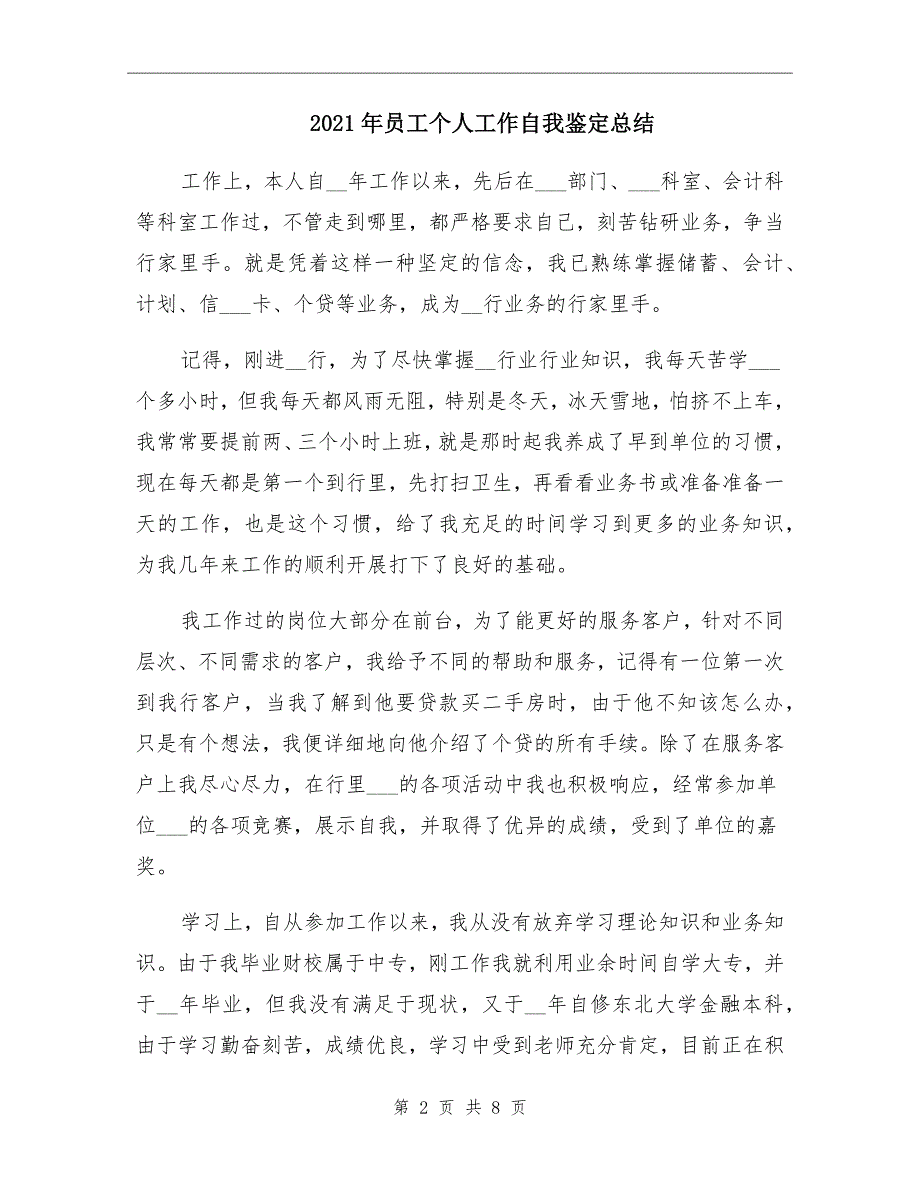 2021 年员工个人工作自我鉴定总结
工作上，本人自__年工作以来，先后在___部门、___科室、会计科
等科室工作过，不管走到哪里，都严格要求自己，刻苦钻研业务，争当
行家里手。就是凭着这样一种坚定的信念，我已熟练掌握储蓄、会计、
计划、信___卡、个贷等业务，成为__行业务的行家里手。
记得，刚进__行，为了尽快掌握__行业行业知识，我每天苦学___
个多小时，但我每天都风雨无阻，特别是冬天，冰天雪地，怕挤不上车，
我常常要提前两、三个小时上班，就是那时起我养成了早到单位的习惯，
现在每天都是第一个到行里，先打扫卫生，再看看业务书或准备准备一
天的工作，也是这个习惯，给了我充足的时间学习到更多的业务知识，
为我几年来工作的顺利开展打下了良好的基础。
我工作过的岗位大部分在前台，为了能更好的服务客户，针对不同
层次、不同需求的客户，我给予不同的帮助和服务，记得有一位第一次
到我行客户，当我了解到他要贷款买二手房时，由于他不知该怎么办，
只是有个想法，我便详细地向他介绍了个贷的所有手续。除了在服务客
户上我尽心尽力，在行里___的各项活动中我也积极响应，经常参加单
位___的各项竞赛，展示自我，并取得了优异的成绩，受到了单位的嘉
奖。
学习上，自从参加工作以来，我从没有放弃学习理论知识和业务知
识。由于我毕业财校属于中专，刚工作我就利用业余时间自学大专，并
于__年毕业，但我没有满足于现状，又于__年自修东北大学金融本科，
由于学习勤奋刻苦，成绩优良，学习中受到老师充分肯定，目前正在积
第 2 页 共 8 页